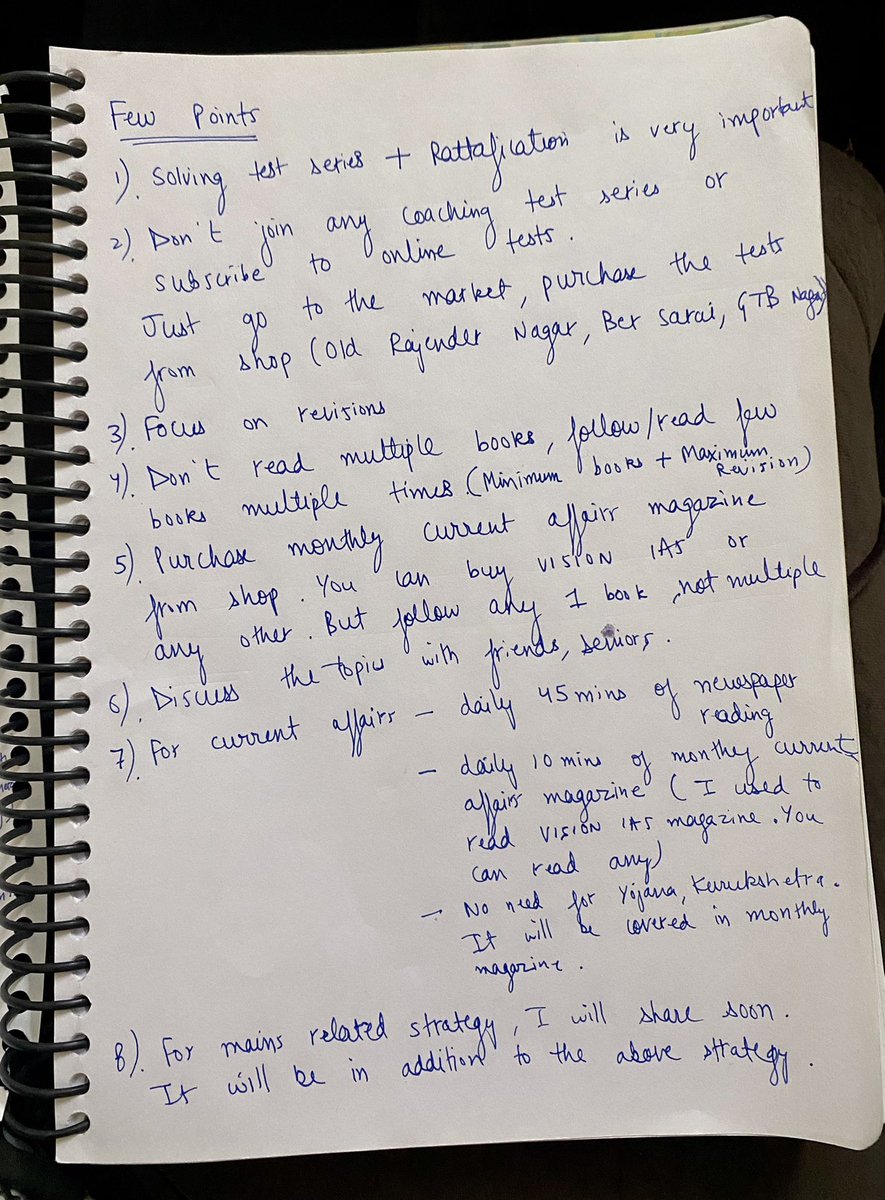 Few Points
1). Solving test series + Rattafication is very important
2). Don't join any coaching test series or
subscribe to online tests.
Just go to the market, purchase the tests
from shop (Old Rajender Nagar, Ber Sarai, GTB Nagar)
3). Focus on revisions
4). Don't read multiple books, follow/read few
books multiple times. (Minimum books + Maximum
Revision)
5). Purchase monthly current affairs magazine
from shop. You can buy VISION IAS or
any other. But follow any 1 book, not multiple
6). Discuss the topics with friends, seniors.
7). For current affairs – daily 45 mins of newspaper
reading
– daily 10 mins of monthly current
affairs magazine (I used to
read VISION IAS magazine. You
can read any)
– No need for Yojana, Kurukshetra.
It will be covered in monthly
magazine.
8). For mains related strategy, I will share soon.
It will be in addition to the above strategy.